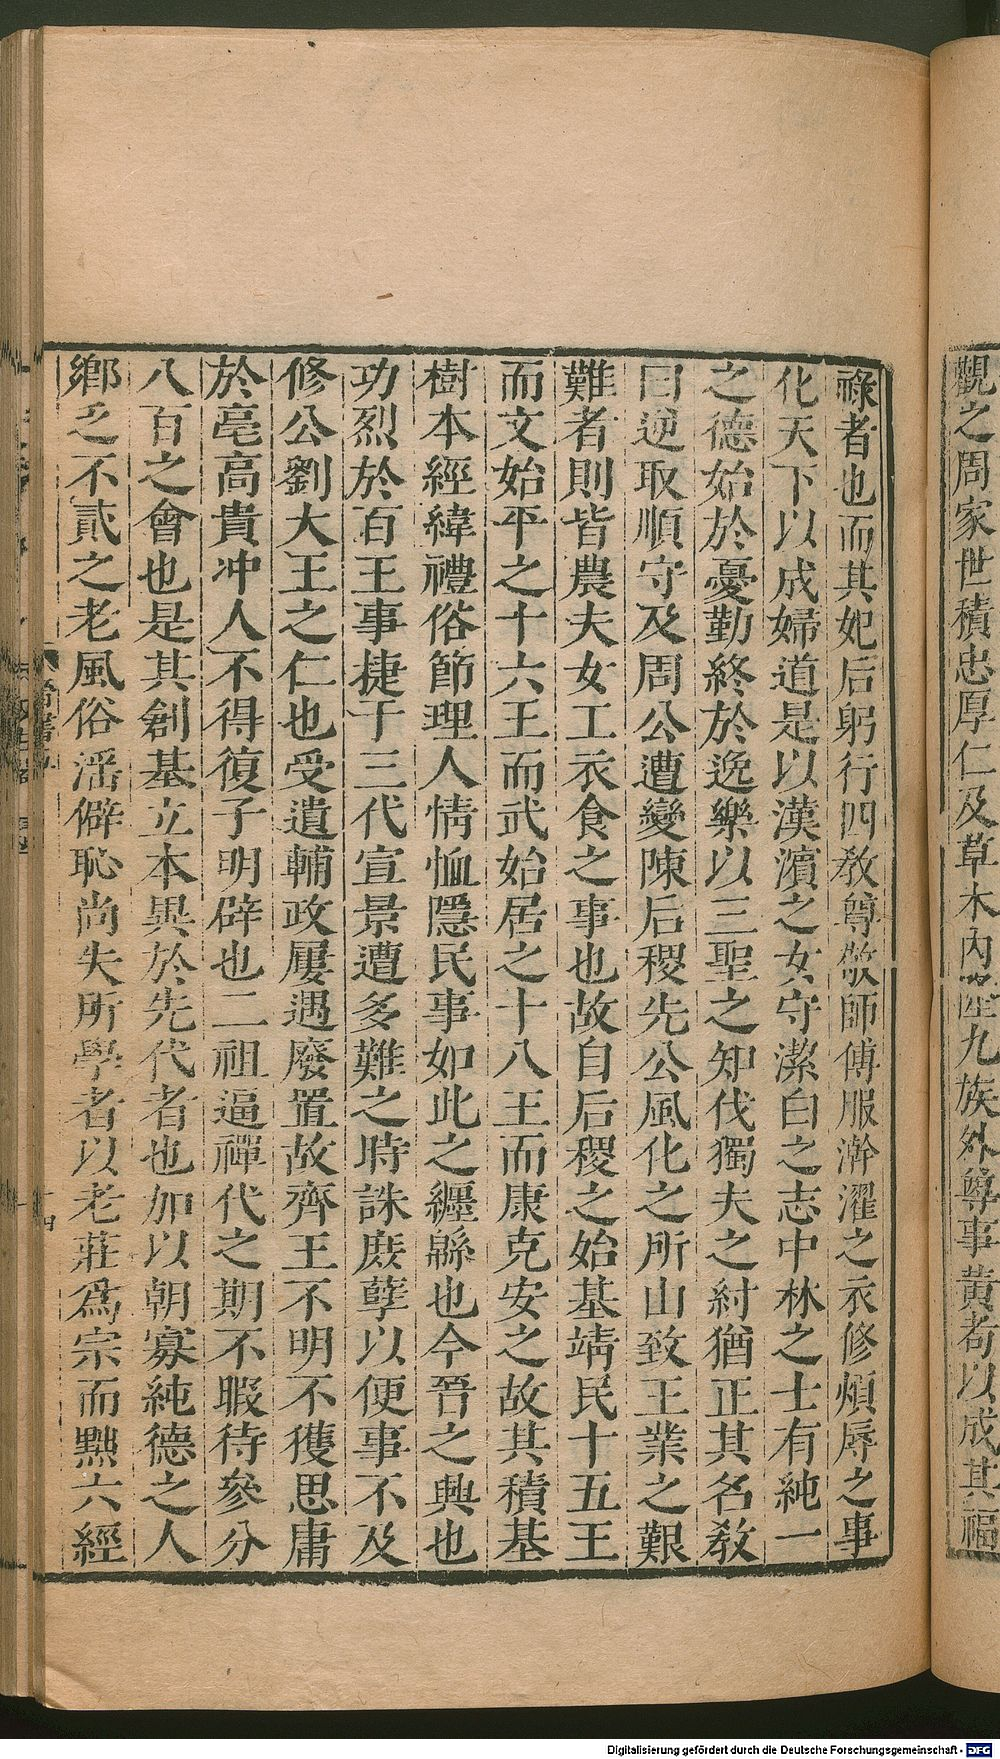 觀之周家世積忠厚仁及草木內睦九族外尊事黃耇以成其福
祿者也而其妃后躬行四敎尊敬師傅服澣濯之衣修煩辱之事
化天下以成婦道是以漢濱之女守潔白之志中林之士有純一
之德始於憂勤終於逸樂以三聖之知伐獨夫之紂猶正其名敎
曰逆取順守及周公遭變陳后稷先公風化之所山致王業之艱
難者則皆農夫女工衣食之事也故自后稷之始基靖民十五王
而文始平之十六王而武始居之十八王而康克安之故其積基
樹本經緯禮俗節理人情恤隱民事如此之纒緜也今晉之興也
功烈於百王事捷于三代宣景遭多難之時誅庶孽以便事不及
修公劉大王之仁也受遺輔政屢遇廢置故齊王不明不獲思庸
於亳高貴冲人不得復子明辟也二祖逼禪代之期不暇待參分
八百之會也是其創基立本異於先代者也加以朝寡純德之人
鄉乏不貳之老風俗淫僻恥尚失所學者以老莊爲宗而黜六經
晉書五
Digitalisierung gefördert durch die Deutsche Forschungsgemeinschaft - DFG